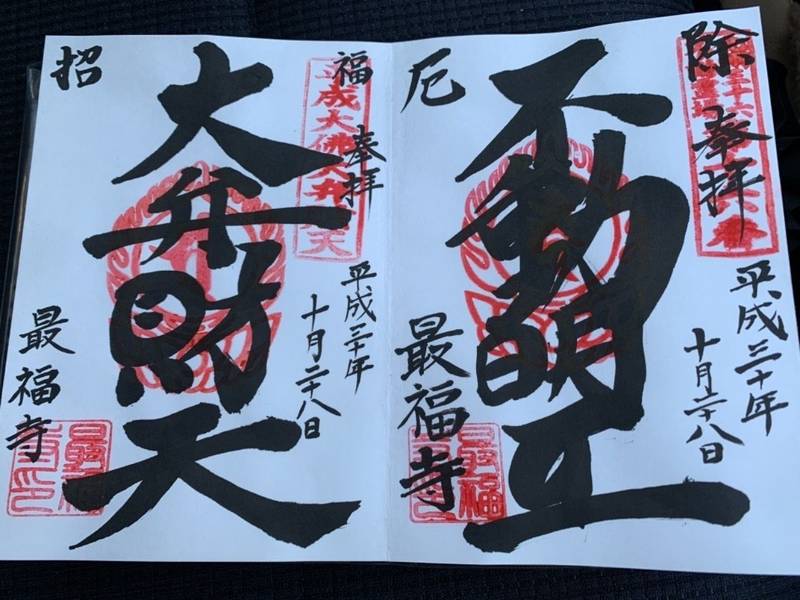 除
奉拝
平成三十年
十月二十八日
不動明王
厄
最福寺
福
平成大佛大弁財天
奉拝
平成三十年
十月二十八日
大弁財天
招
最福寺